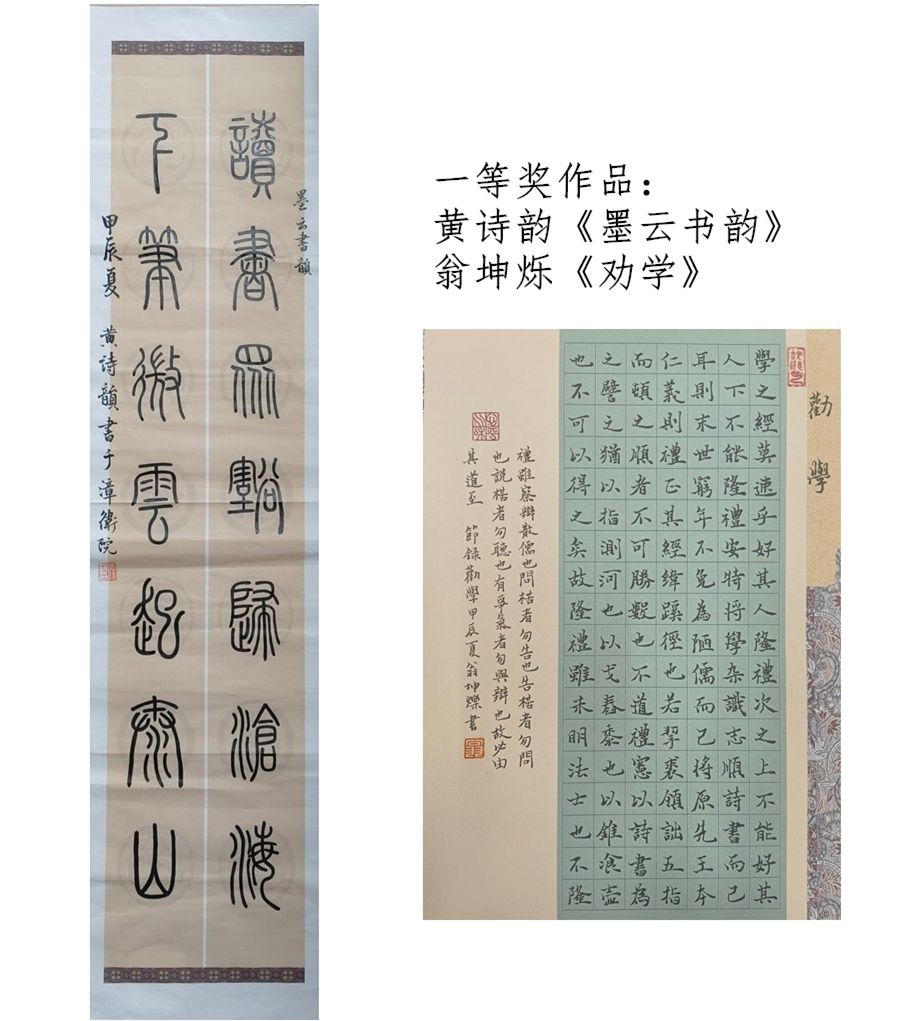 一等奖作品：
黄诗韵《墨云书韵》
翁坤烁《劝学》
墨云書韻
讀書眾壑歸滄海
下筆微雲起泰山
甲辰夏 黄诗韻書于漳衛院
勸學
學之經莫速乎好其人隆禮次之上不能好其
人下不能隆禮安特将學杂識志順詩書而已
耳則末世窮年不免為陋儒而已将原先王本
仁義則禮正其經緯蹊徑也若挈裘領詘五指
而頓之順者不可勝數也不道禮憲以詩書為
之譬之猶以指測河也以戈舂黍也以錐飡壺
也不可以得之矣故隆禮雖未明法士也不隆
禮雖察辯散儒也問楛者勿告也告楛者勿問
也説楛者勿聽也有爭氣者勿與辯也故必由
其道至 節録勸學甲辰夏翁坤爍書